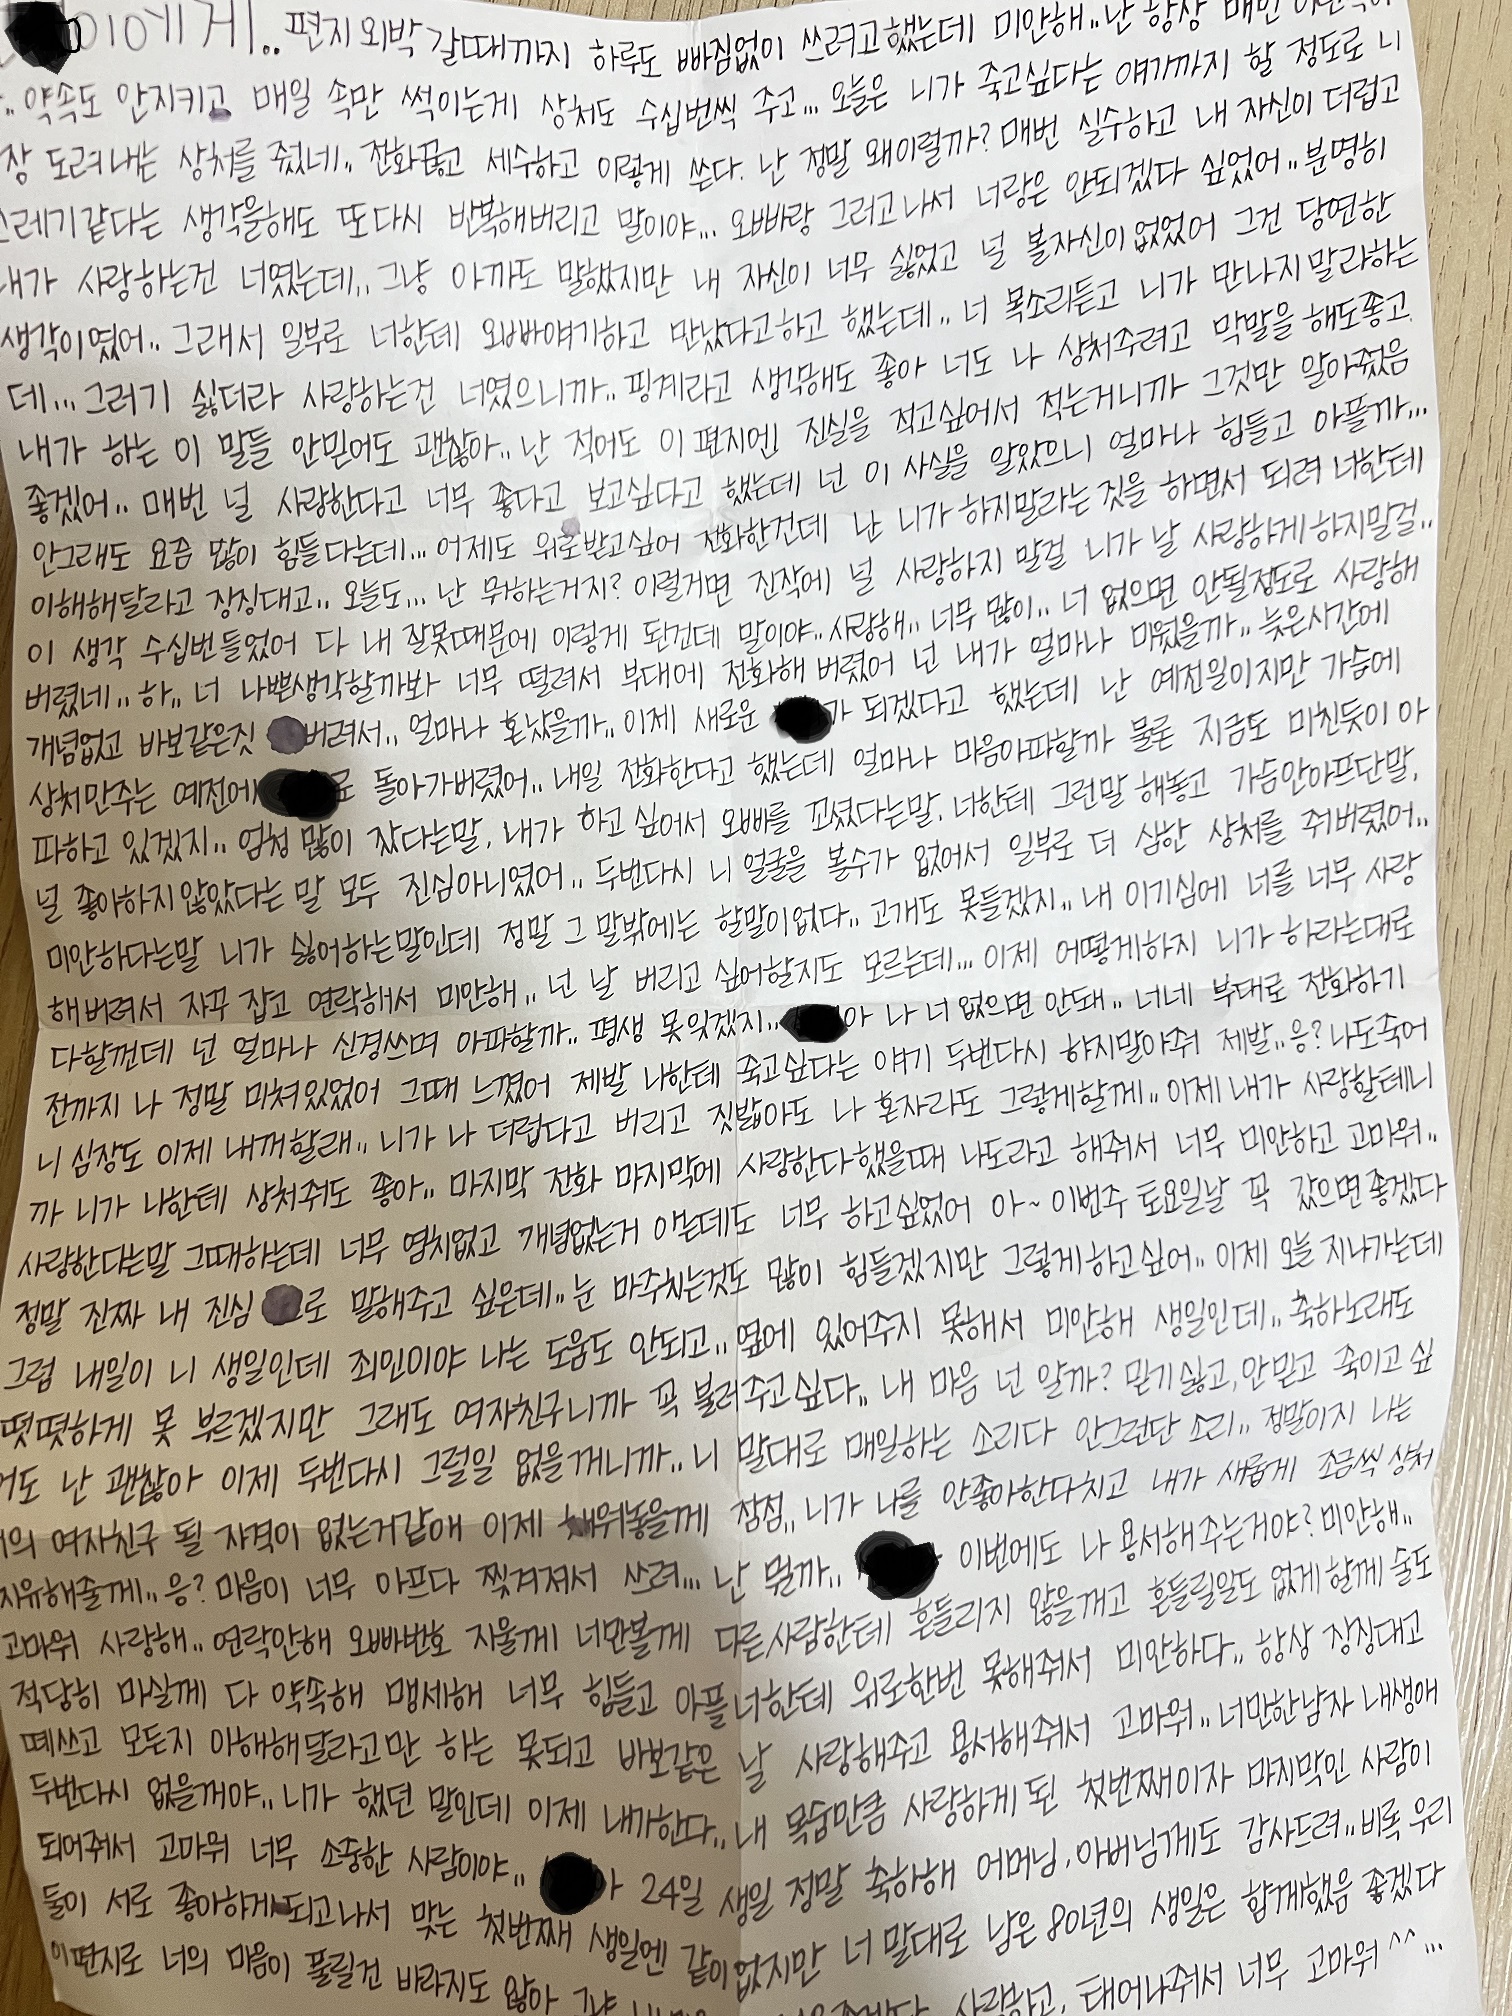 이에게.. 편지 외박 갈때까지 하루도 빠짐없이 쓰려고했는데 미안해.. 난 항상 매번
약속도 안지키고 매일 속만 썩이는게 상처도 수십번씩 주고... 오늘은 니가 죽고싶다는 얘기까지 할 정도로 니
장 도려내는 상처를 줬네.. 전화끊고 세수하고 이렇게 쓴다. 난 정말 왜이럴까? 매번 실수하고 내 자신이 더럽고
쓰레기같다는 생각을해도 또다시 반복해버리고 말이야... 오빠랑 그러고나서 너랑은 안되겠다 싶었어.. 분명히
내가 사랑하는건 너였는데.. 그냥 아까도 말했지만 내 자신이 너무 싫었고 널 볼자신이 없었어 그건 당연한
생각이였어.. 그래서 일부로 너한데 오빠얘기하고 만났다고하고 했는데.. 너 목소리듣고 니가 만나지말라하는
데... 그러기 싫더라 사랑하는건 너였으니까.. 핑계라고 생각해도 좋아 너도 나 상처주려고 막말을 해도좋고.
내가 하는 이 말들 안믿어도 괜찮아.. 난 적어도 이 편지엔 진실을 적고싶어서 적는거니까 그것만 알아줬음
좋겠어.. 매번 널 사랑한다고 너무 좋다고 보고싶다고 했는데 넌 이 사실을 알았으니 얼마나 힘들고 아플까...
안그래도 요즘 많이 힘들다는데... 어제도 위로받고싶어 전화한건데 난 니가 하지말라는 짓을 하면서 되려 너한테
이해해달라고 징징대고.. 오늘도... 난 뭐하는거지? 이럴거면 진작에 널 사랑하지 말걸 니가 날 사랑하게 하지말걸..
이 생각 수십번들었어 다 내 잘못때문에 이렇게 된건데 말이야.. 사랑해.. 너무 많이.. 너 없으면 안될정도로 사랑해
버렸네.. 하.. 너 나쁜생각할까봐 너무 떨려서 부대에 전화해 버렸어 넌 내가 얼마나 미웠을까.. 늦은시간에
개념없고 바보같은짓 버려서.. 얼마나 혼났을까.. 이제 새로운 가 되겠다고 했는데 난 예전일이지만 가슴에
상처만주는 예전에 로 돌아가버렸어.. 내일 전화한다고 했는데 얼마나 마음아파할까 물론 지금도 미친듯이 아
파하고 있겠지.. 엄청 많이 잤다는말, 내가 하고 싶어서 오빠를 꼬셨다는말, 너한테 그런말 해놓고 가슴안아프단말,
널 좋아하지않았다는 말 모두 진심아니였어.. 두번다시 니 얼굴을 볼수가 없어서 일부로 더 심한 상처를 줘버렸어..
미안하다는말 니가 싫어하는말인데 정말 그 말밖에는 할말이없다.. 고개도 못들겠지.. 내 이기심에 너를 너무 사랑
해버려서 자꾸 잡고 연락해서 미안해.. 넌 날 버리고 싶어할지도 모르는데... 이제 어떻게하지 니가 하라는대로
다할껀데 넌 얼마나 신경쓰며 아파할까.. 평생 못잊겠지.. 아 나 너 없으면 안돼.. 너네 부대로 전화하기
전까지 나 정말 미쳐있었어 그때 느꼈어 제발 나한테 죽고싶다는 얘기 두번다시 하지말아줘 제발.. 응? 나도죽어
니 심장도 이제 내꺼할래.. 니가 나 더럽다고 버리고 짓밟아도 나 혼자라도 그렇게할께.. 이제 내가 사랑할테니
까 니가 나한테 상처줘도 좋아.. 마지막 전화 마지막에 사랑한다했을때 나도라고 해줘서 너무 미안하고 고마워..
사랑한다는말 그때하는데 너무 염치없고 개념없는거 아는데도 너무 하고싶었어 아~ 이번주 토요일날 꼭 갔으면 좋겠다
정말 진짜 내 진심 로 말해주고 싶은데.. 눈 마주치는것도 많이 힘들겠지만 그렇게하고싶어.. 이제 오늘 지나가는데
그럼 내일이 니 생일인데 죄인이야 나는 도움도 안되고.. 옆에 있어주지 못해서 미안해 생일인데.. 축하노래도
떳떳하게 못 부르겠지만 그래도 여자친구니까 꼭 불러주고싶다.. 내 마음 넌 알까? 믿기싫고, 안믿고 죽이고 싶
어도 난 괜찮아 이제 두번다시 그럴일 없을꺼니까.. 니 말대로 매일하는 소리다 안그런단 소리.. 정말이지 나는
너의 여자친구 될 자격이 없는거같애 이제 채워놓을께 점점.. 니가 나를 안좋아한다치고 내가 새롭게 조금씩 상처
치유해줄께.. 응? 마음이 너무 아프다 찢겨져서 쓰려... 난 뭘까.. 이번에도 나 용서해주는거야? 미안해..
고마워 사랑해.. 연락안해 오빠번호 지울께 너만볼께 다른사람한테 흔들리지 않을꺼고 흔들릴일도 없게 할께 술도
적당히 마실께 다 약속해 맹세해 너무 힘들고 아플너한테 위로한번 못해줘서 미안하다.. 항상 징징대고
떼쓰고 모든지 이해해달라고만 하는 못되고 바보같은 날 사랑해주고 용서해줘서 고마워.. 너만한남자 내생애
두번다시 없을꺼야.. 니가 했던 말인데 이제 내가한다.. 내 목숨만큼 사랑하게 된 첫번째이자 마지막인 사람이
되어줘서 고마워 너무 소중한 사람이야.. 24일 생일 정말 축하해 어머님, 아버님께도 감사드려.. 비록 우리
둘이 서로 좋아하게 되고나서 맞는 첫번째 생일엔 같이없지만 너 말대로 남은 80년의 생일은 함께했음 좋겠다
이편지로 너의 마음이 풀릴건 바라지도 않아 그냥
사랑하고, 태어나줘서 너무 고마워 ^^...